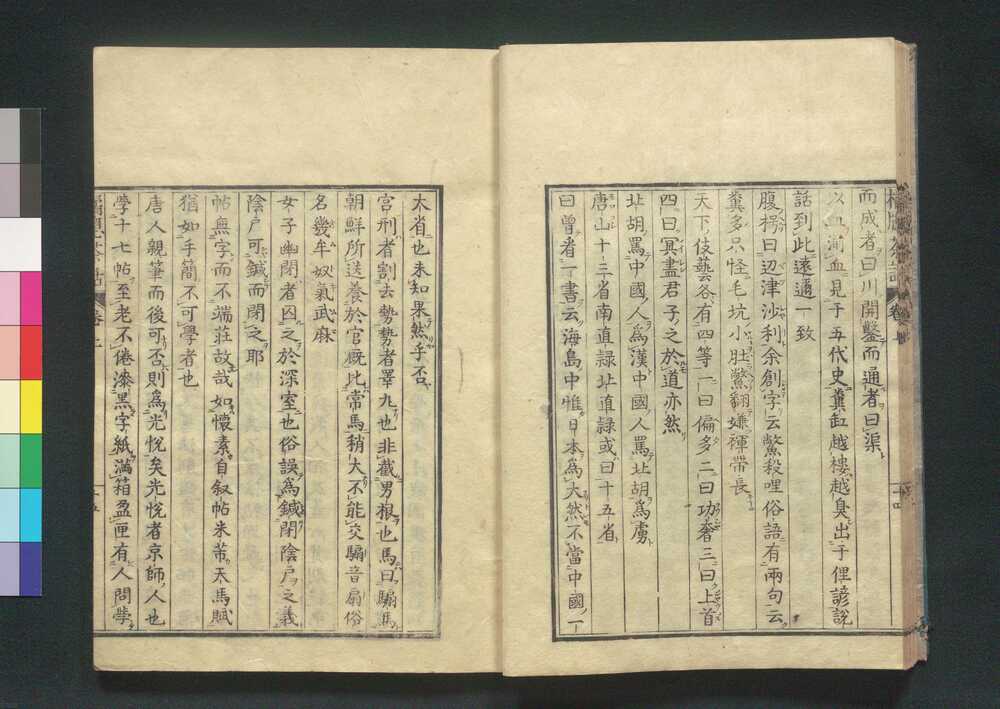 而成者曰川開鑿而通者曰渠
以血洞血見于五代史糞缸越樓越臭出于俚諺説
話到此遠通一致
腹椁曰辺津沙利余創字云鱉殺哩俗語有兩句云
糞多只怪毛坑小肚鱉翻嫌褌帶長
天下伎藝各有四等一曰偏多二曰功奢三曰上首
四曰冥盡君子之於道亦然
北胡罵中國人為漢中國人罵北胡為虜
唐山十三省南直隷北直隷或曰十五省
曰曽看一書云海島中惟日本為大然不當中國一
大省也未知果然乎否
宮刑者割去勢勢者睪丸也非截男根也馬曰騸馬
朝鮮所送養於官厩比常馬稍大不能交騸音扇俗
名幾牟奴氣武麻
女子幽閉者囚之於深室也俗誤為鍼閉陰戸之義
陰戸可鍼而閉之耶
帖無字而不端莊故哉如懷素自叙帖米芾天馬賦
猶如手簡不可學者也
唐人親筆而後可否則為光悦矣光悦者京師人也
學十七帖至老不倦漆黒字紙滿箱盈匣有人問學